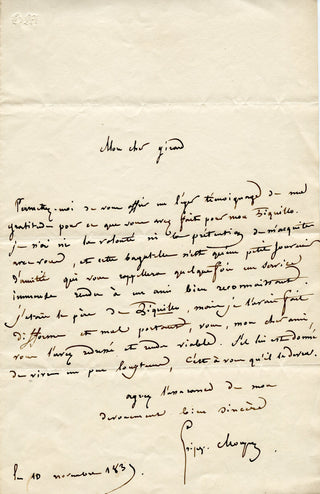 Mon cher girard
Permettez-moi de vous offrir un léger témoignage de ma
gratitude pour ce que vous avez fait pour mon Piquillo.
je n'ai ni la volonté ni la prétention de m'acquitter
avec vous, et cette bagatelle n'est qu'un petit souvenir
d'amitié qui vous rappellera quelquefois un service
immense rendu à un ami bien reconnaissant
j'étais le père de Piquillo, mais je l'avais fait
difforme et mal portant, vous, mon cher ami,
vous l'avez redressé et rendu viable. S'il lui est donné
de vivre un peu longtemps, c'est à vous qu'il le devra.
agréez l'assurance de mon
dévouement bien sincère
Hippte Monpou
Ce 10 novembre 1837